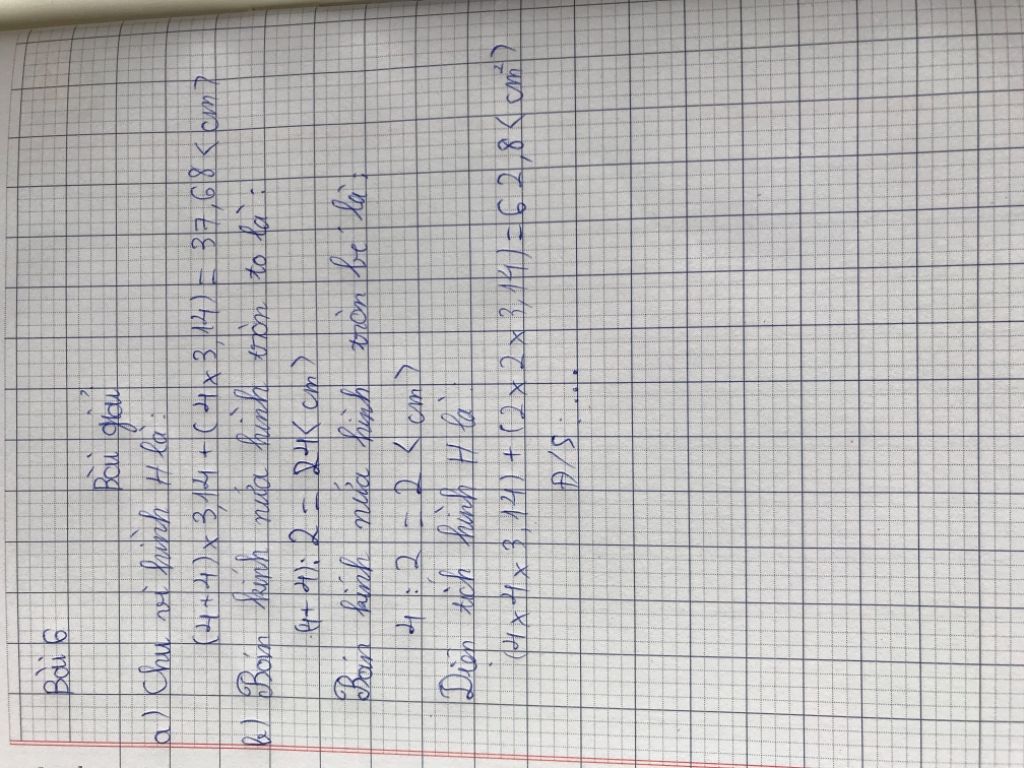 Bài 6
Bài giải
a) Chu vi hình H là:
(4+4)×3,14+(4×3,14)=37,68<cm>
b) Bán kính nửa hình tròn to là:
(4+4):2=24<cm>
Bán kính nửa hình tròn bé là:
4:2=2<cm>
Diện tích hình H là
(4×4×3,14)+(2×2×3,14)=62,8<cm²>
Đ/S:....